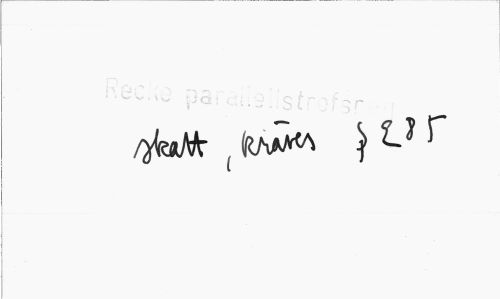 Recke parallellstrofsreg
skatt, kräves § 285